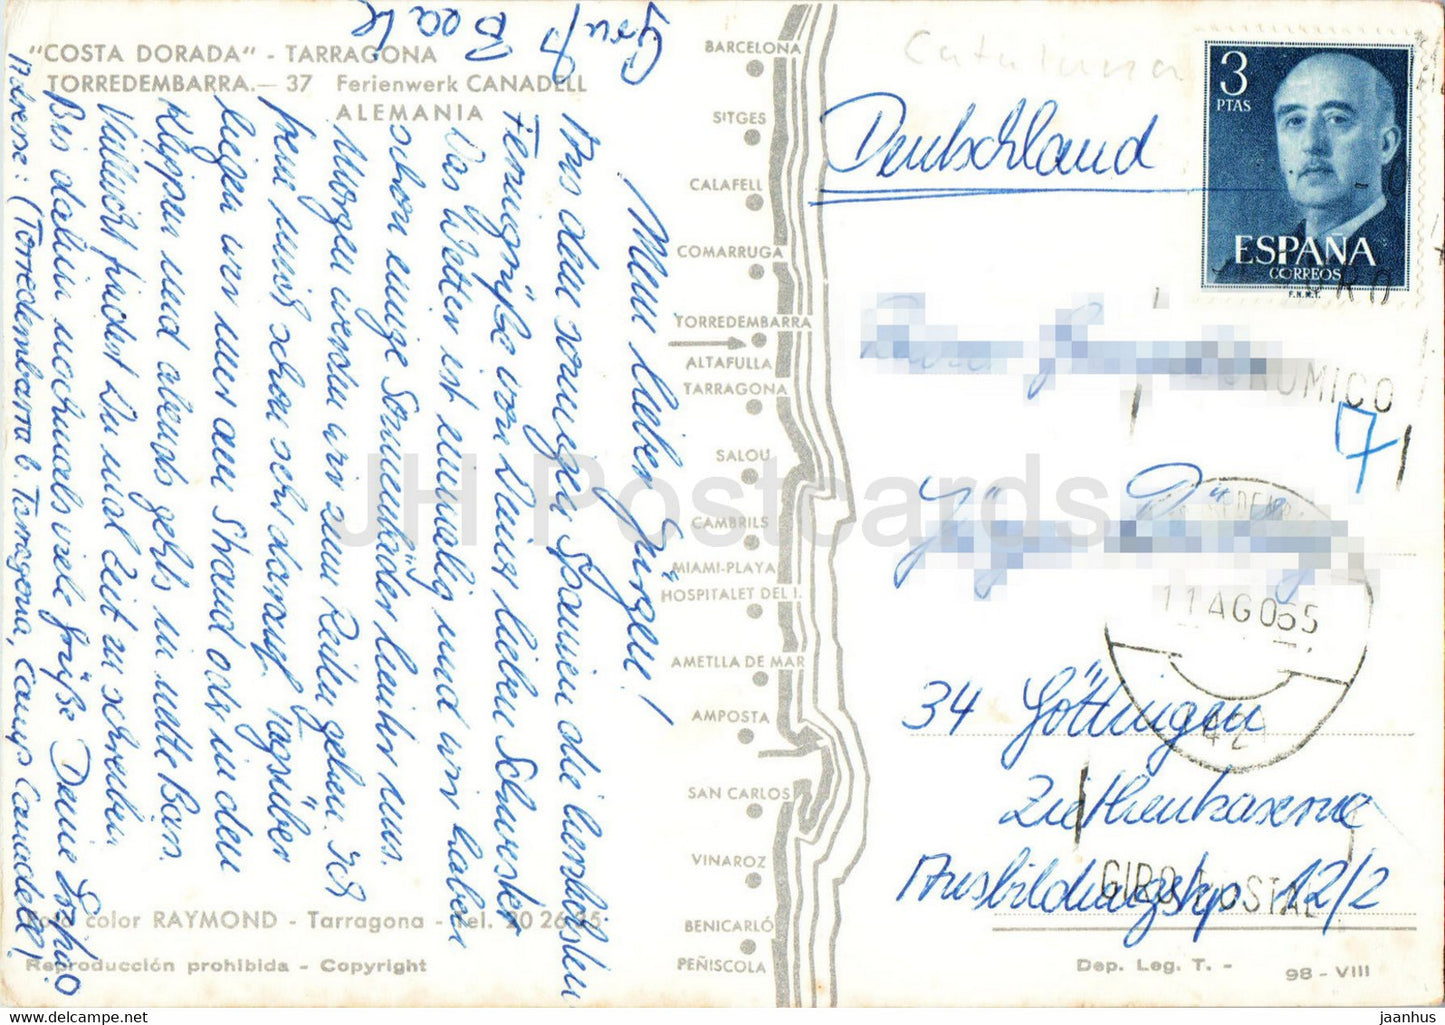 "COSTA DORADA" - TARRAGONA
TORREDEMBARRA.— 37 Ferienwerk CANADELL
ALEMANIA
Mein lieber Jürgen!
Aus dem sonnigen Spanien die herzlichsten
Feriengrüße von Deiner lieben Schwester
Das Wetter ist einmalig und wir haben
schon einige Sonnenbäder hinter uns.
Morgen werden wir zum Reiten gehen. Ich
freue mich schon sehr darauf. Tagsüber
liegen wir hier am Strand oder in den
Klippen und abends geht's in nette Bars.
Vielleicht findest Du mal Zeit zu schreiben
Bis dahin nochmals viele Grüße Deine
Adresse: (Torredembarra b. Tarragona, Camp Canadell)
Gruß
Beate
Foto color RAYMOND - Tarragona - Tel. 20 26 95
Reproducción prohibida - Copyright
BARCELONA
SITGES
CALAFELL
COMARRUGA
TORREDEMBARRA
ALTAFULLA
TARRAGONA
SALOU
CAMBRILS
MIAMI-PLAYA
HOSPITALET DEL I.
AMETLLA DE MAR
AMPOSTA
SAN CARLOS
VINAROZ
BENICARLÓ
PEÑISCOLA
Deutschland
3
PTAS
ESPAÑA
CORREOS
F.N.M.T.
7
11 AGO 65
34 Göttingen
Ziethenkaserne
Ausbildungskp 12/2
GIRO POSTAL
Dep. Leg. T. - 98 - VIII
JH Postcards
jaanhus - https://www.delcampe.net